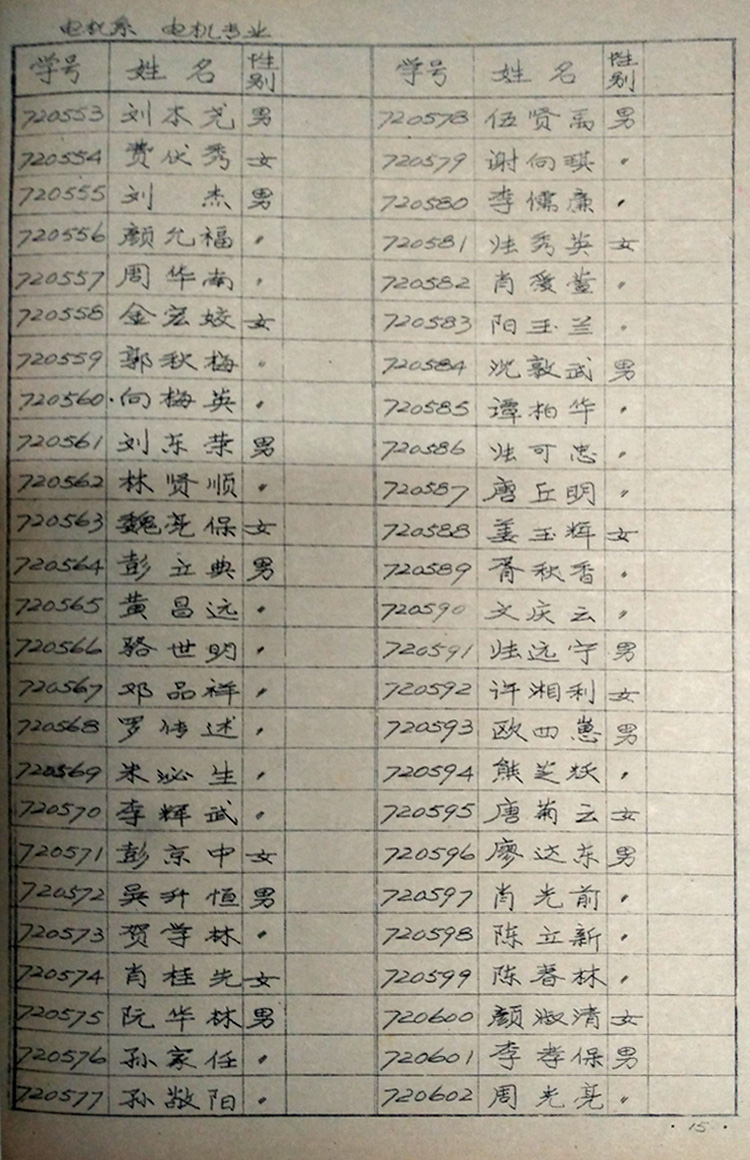 电机系 电机专业
学号 姓名 性别 学号 姓名 性别
720553 刘本尧 男 720578 伍贤禹 男
720554 费伏秀 女 720579 谢向琪 〃
720555 刘杰 男 720580 李儒廉 〃
720556 颜允福 〃 720581 陆秀英 女
720557 周华南 〃 720582 肖爱萱 〃
720558 金宏姣 女 720583 阳玉兰 〃
720559 郭秋梅 〃 720584 沈敦武 男
720560 向梅英 〃 720585 谭柏华 〃
720561 刘东荣 男 720586 陆可忠 〃
720562 林贤顺 〃 720587 唐丘明 〃
720563 魏亮保 女 720588 姜玉辉 女
720564 彭立典 男 720589 胥秋香 〃
720565 黄昌远 〃 720590 文庆云 〃
720566 骆世明 〃 720591 陆远守 男
720567 邓品祥 〃 720592 许湘利 女
720568 罗传述 〃 720593 欧四崽 男
720569 米泌生 〃 720594 熊芝 〃
720570 李辉武 〃 720595 唐菊云 女
720571 彭京中 女 720596 廖达东 男
720572 吴升恒 男 720597 肖光前 〃
720573 贺学林 〃 720598 陈立新 〃
720574 肖桂先 女 720599 陈春林 〃
720575 阮华林 男 720600 颜淑清 女
720576 孙家任 〃 720601 李孝保 男
720577 孙敬阳 〃 720602 周光亮 〃
·15·